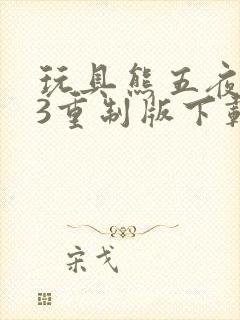 玩具熊五夜
3重制版下载
宋戈